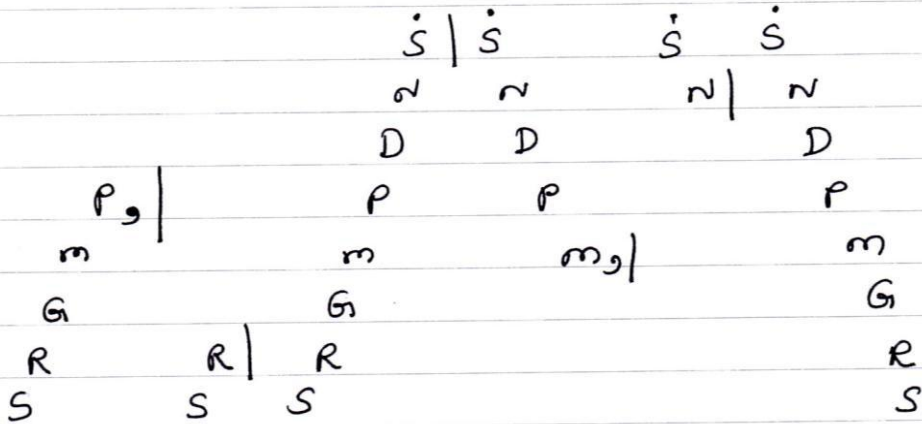 Ṡ | Ṡ Ṡ Ṡ
N N N | N
D D D
P , | P P P
m m m , | m
G G G
R R | R R
S S S S